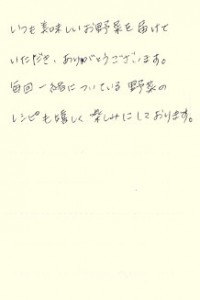 いつも美味しいお野菜を届けて
いただき、ありがとうございます。
毎回一緒についている野菜の
レシピも嬉しく楽しみにしております。